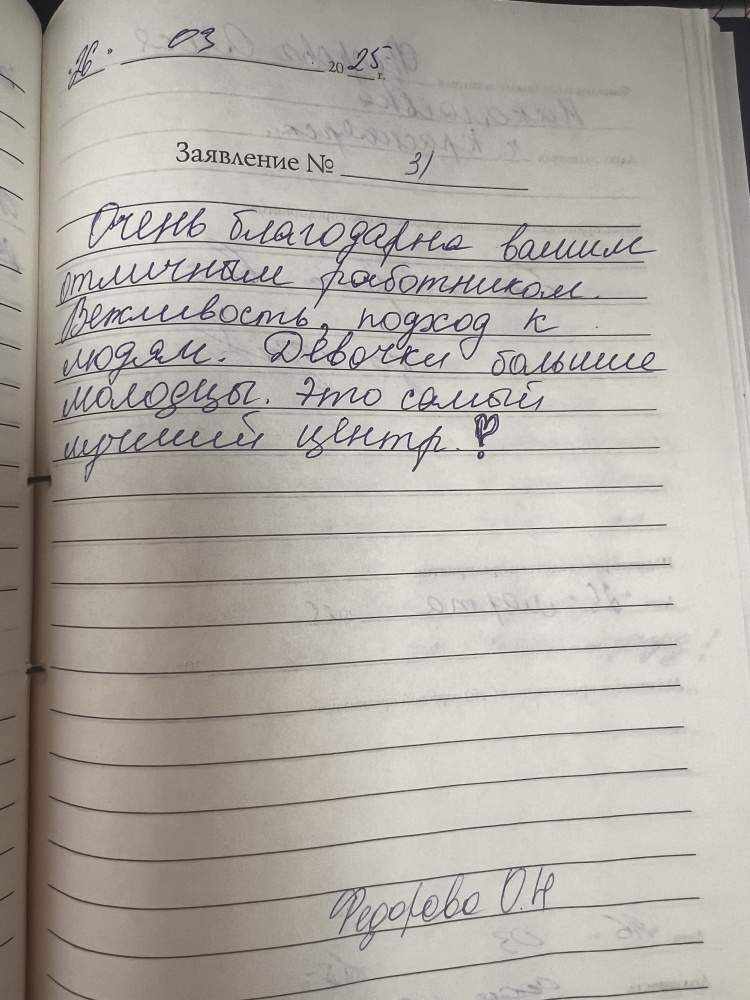 26. 03 2025 г.
Заявление № 31
Очень благодарна вашим
отличным работником.
Вежливость, подход к
людям. Девочки большие
молодцы. Это самый
лучший центр.
Федорова О.Н